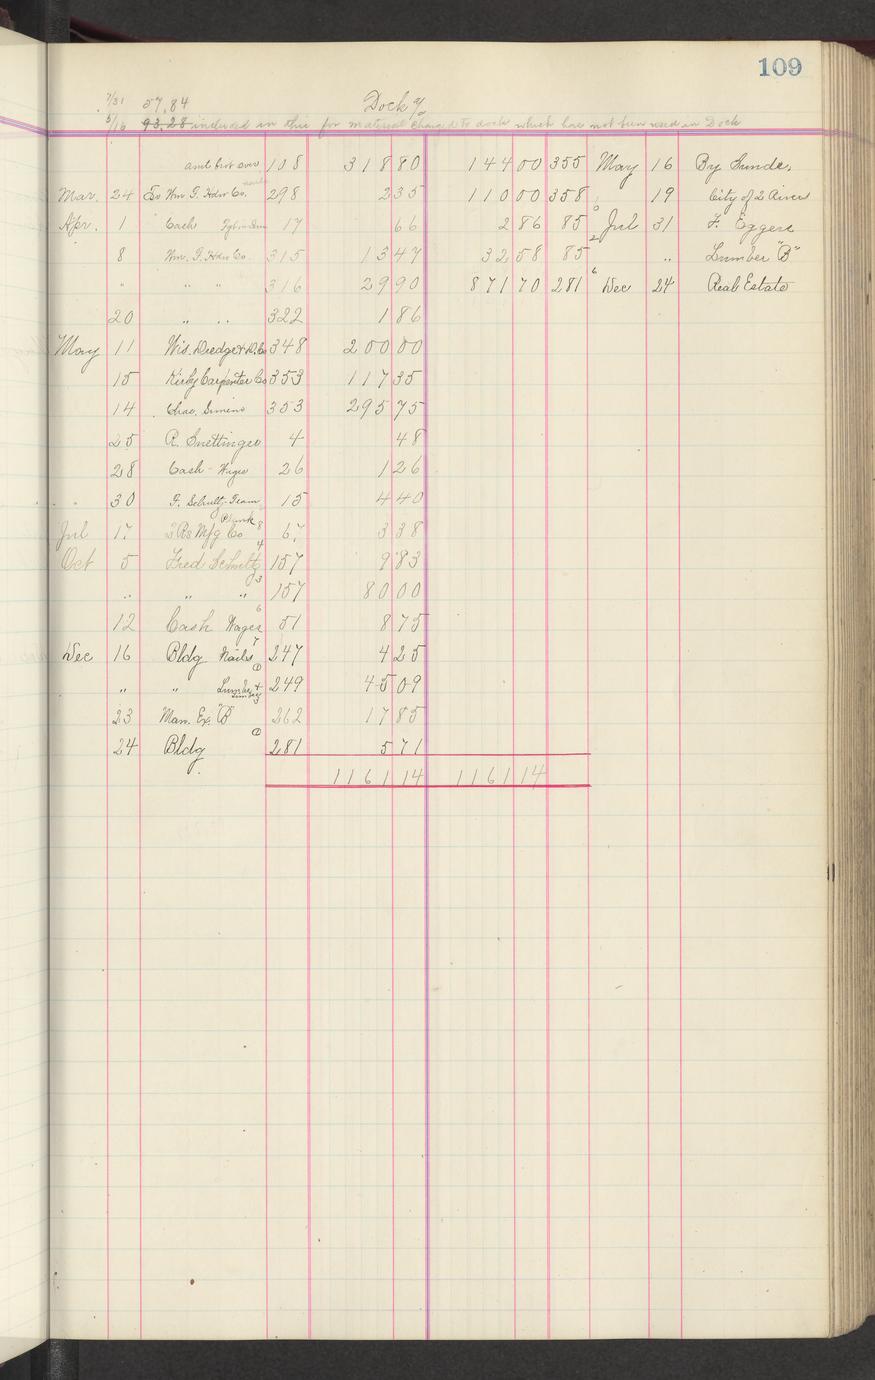 109
7/31 57.84 Dock %
5/16 93.28 included in this for material charged to dock which has not been used in Dock
amt brot over 108 318 80 144 00 355 May 16 By Sunds.
Mar. 24 To Wm G. Hdw Co. 298 2 35 110 00 358 19 City of 2 Rivers
Apr. 1 Cash 17 66 2 86 85 Jul 31 F. Eggers
8 Wm. G. Hdw Co. 315 13 47 32 58 85 " Lumber "B"
" " " 316 29 90 871 70 281 Dec 24 Real Estate
20 " " 322 1 86
May 11 Wis. Dredge & D. Co 348 200 00
15 Kirby Carpenter Co 353 117 35
14 Chas. Simens 353 295 75
25 R. Snettinger 4 48
28 Cash - Wages 26 1 26
" 30 F. Schultz-Team 15 4 40
Jul 17 2 Rs Mfg Co Plank 8 67 3 38
Oct 5 Fred Schultz 4 157 9 83
" " " 3 157 80 00
12 Cash Wages 6 51 8 75
Dec 16 Bldg Nails 7 247 4 25
" " Lumber 249 45 09
23 Man. Ex. "B" 262 17 85
24 Bldg 281 5 71
1161 14 1161 14